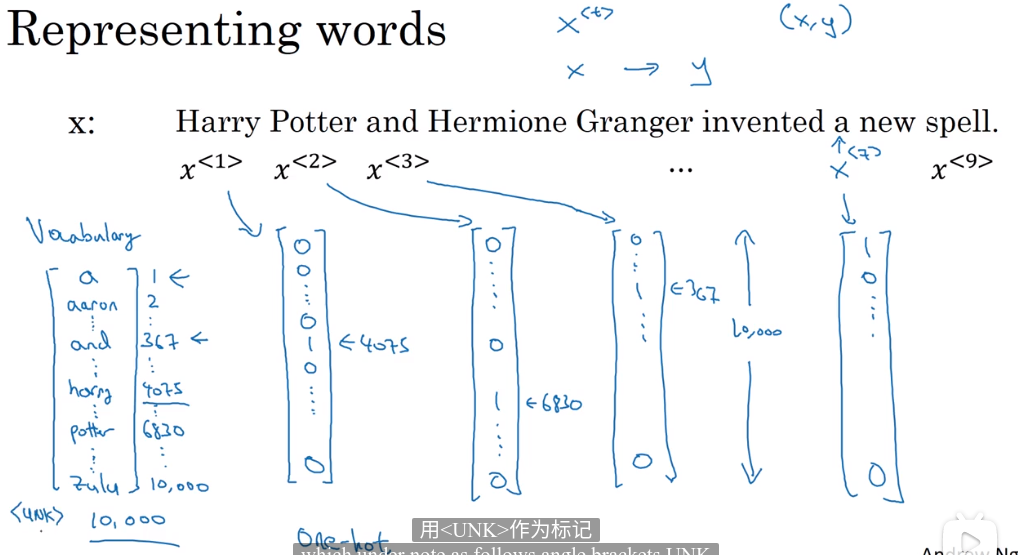 Representing words
x<t>
(x,y)
x → y
x: Harry Potter and Hermione Granger invented a new spell.
x<1> x<2> x<3> ... x<7> x<9>
Vocabulary
a 1 ←
aaron 2
and 367 ←
harry 4075
potter 6830
zulu 10,000
<UNK> 10,000
0
0
0
1 ←4075
0
0
0
0
1 ←6830
0
0
1 ←367
0
10,000
1
0
0
One-hot
用<UNK>作为标记
which under note as follows angle brackets UNK
Andrew Ng